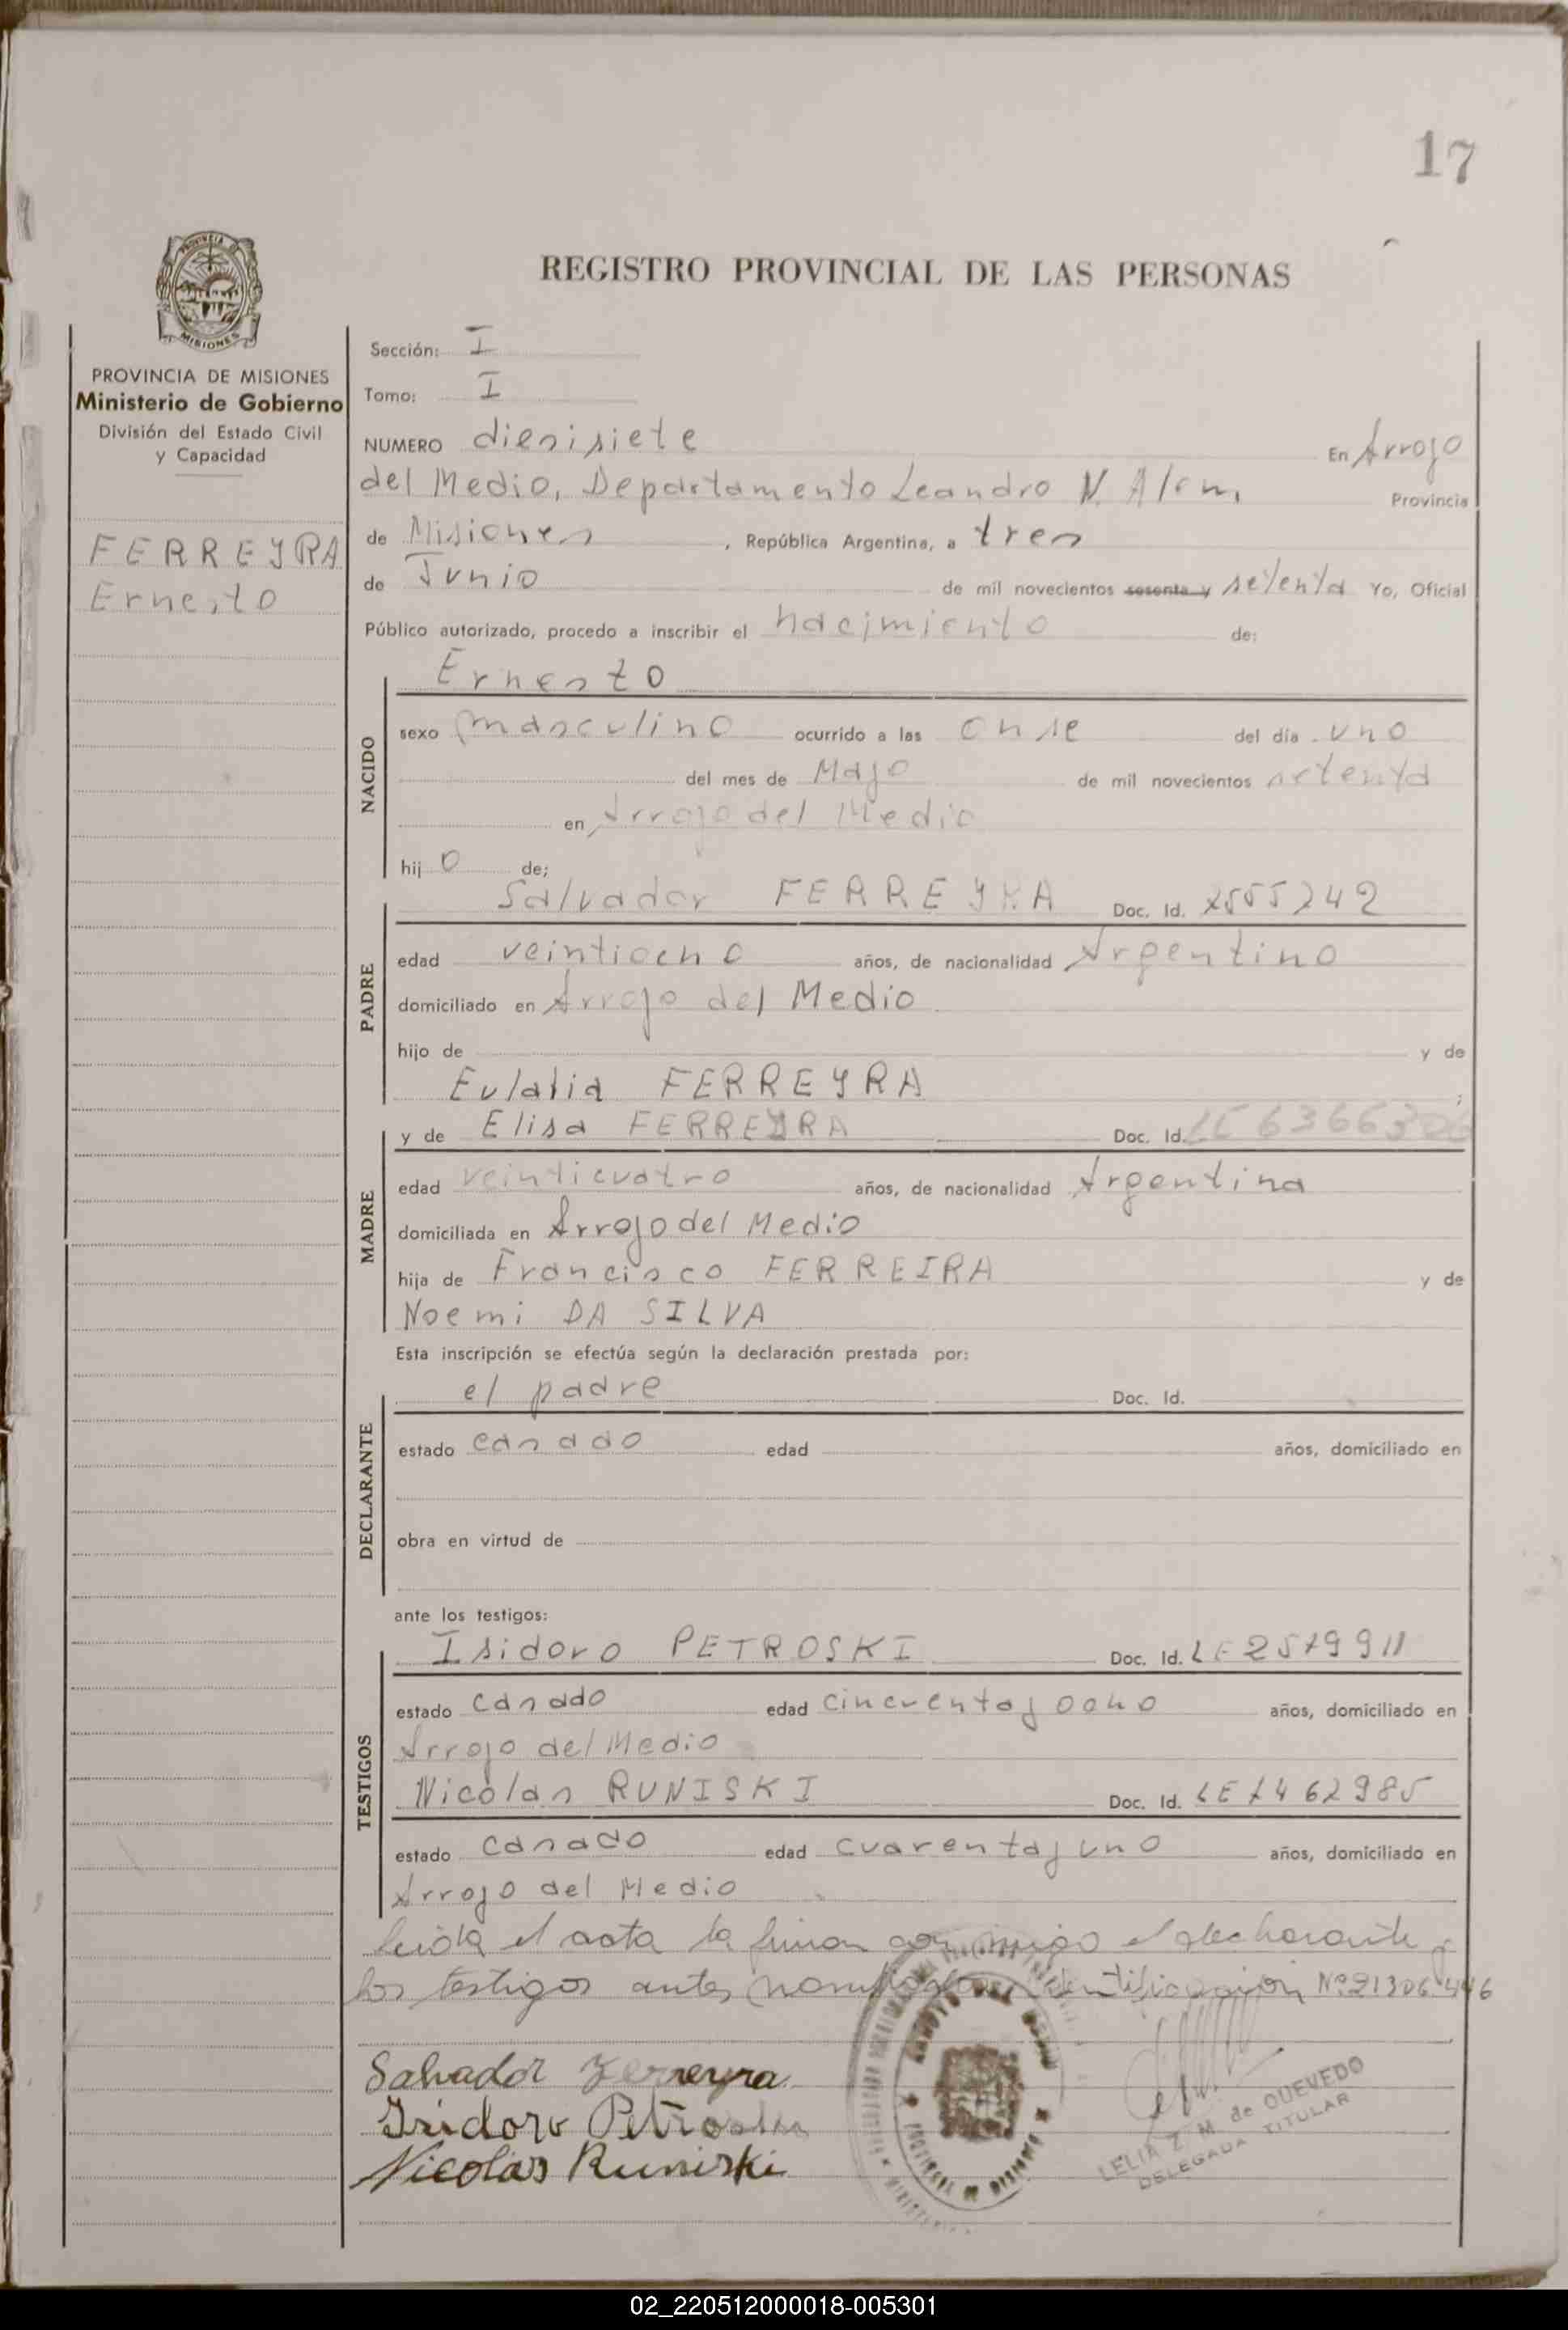 17
REGISTRO PROVINCIAL DE LAS PERSONAS
MISIONES
PROVINCIA DE MISIONES
Ministerio de Gobierno
División del Estado Civil
y Capacidad
FERREYRA
Ernesto
Sección: I
Tomo: I
NUMERO diesisiete En Arroyo
del Medio, Departamento Leandro N. Alem, Provincia
de Misiones, República Argentina, a tres
de Junio de mil novecientos sesenta y setenta Yo, Oficial
Público autorizado, procedo a inscribir el nacimiento de:
NACIDO
Ernesto
sexo masculino ocurrido a las onse del día uno
del mes de Mayo de mil novecientos setenta
en Arroyo del Medio
hijo de;
PADRE
Salvador FERREYRA Doc. Id.
edad veintiocho años, de nacionalidad Argentino
domiciliado en Arroyo del Medio
hijo de y de
Eulalia FERREYRA ;
MADRE
y de Elisa FERREYRA Doc. Id. LC 6366306
edad veinticuatro años, de nacionalidad Argentina
domiciliada en Arroyo del Medio
hija de Francisco FERREIRA y de
Noemi DA SILVA
Esta inscripción se efectúa según la declaración prestada por:
DECLARANTE
el padre Doc. Id.
estado casado edad años, domiciliado en
obra en virtud de
ante los testigos:
TESTIGOS
Isidoro PETROSKI Doc. Id. LE
estado casado edad cincuenta y ocho años, domiciliado en
Arroyo del Medio
Nicolas RUNISKI Doc. Id. LE 1462985
estado casado edad cuarenta y uno años, domiciliado en
Arroyo del Medio
leida el acta la firman conmigo el declarante y
los testigos antes nombrados Identificacion Nº 21306446
Salvador Ferreyra
Isidoro Petroski
Nicolas Runiski
LELIA Z. M. de QUEVEDO
DELEGADA TITULAR
02_220512000018-005301